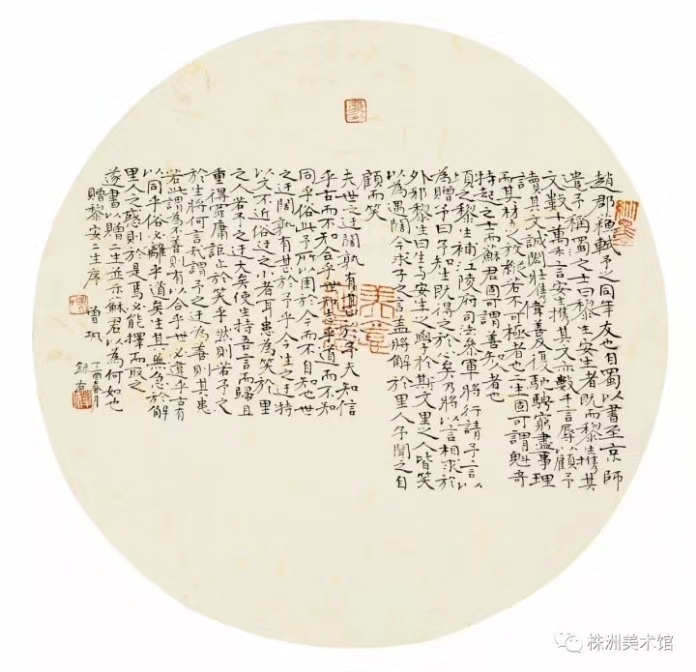 趙郡蘓軾予之同年友也自蜀以書至京師
遺予稱蜀之士曰黎生安生者既而黎生携其
文数十萬言安生携其文亦數千言辱以顧予
讀其文誠閎壯雋偉善反復馳騁窮盡事理
而其材力之放縱若不可極者也二生固可謂魁奇
特起之士而蘇君固可謂善知人者也
頃之黎生補江陵府司法參軍將行請予言以
為贈予曰予知生既得之於心矣乃將以言相求於
外邪黎生曰生與安生之學於斯文里之人皆笑
以為迂闊今求子之言盖將解於里人予聞之自
顧而笑
夫世之迂闊孰有甚於予乎知信
乎古而不知合乎世知志乎道而不知
同乎俗此予所以困於今而不自知也世
之迂闊孰有甚於予乎今生之迂特
以文不近俗迂之小者耳患為笑於里
之人若予之迂大矣使生持吾言而歸且
重得罪庸詎止於笑乎然則若予之
於生將何言哉謂予之迂為善則其患
若此謂為不善則有以合乎世必違乎古有
以同乎俗必離乎道矣生其無急於解
里人之惑則於是焉必能擇而取之
遂書以贈二生並示蘇君以為何如也
贈黎安二生序 曾巩
丁酉春月
株洲美术馆